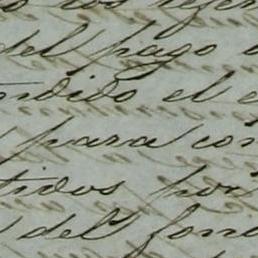 del pago
ndido el
para con
tidos por
del fond